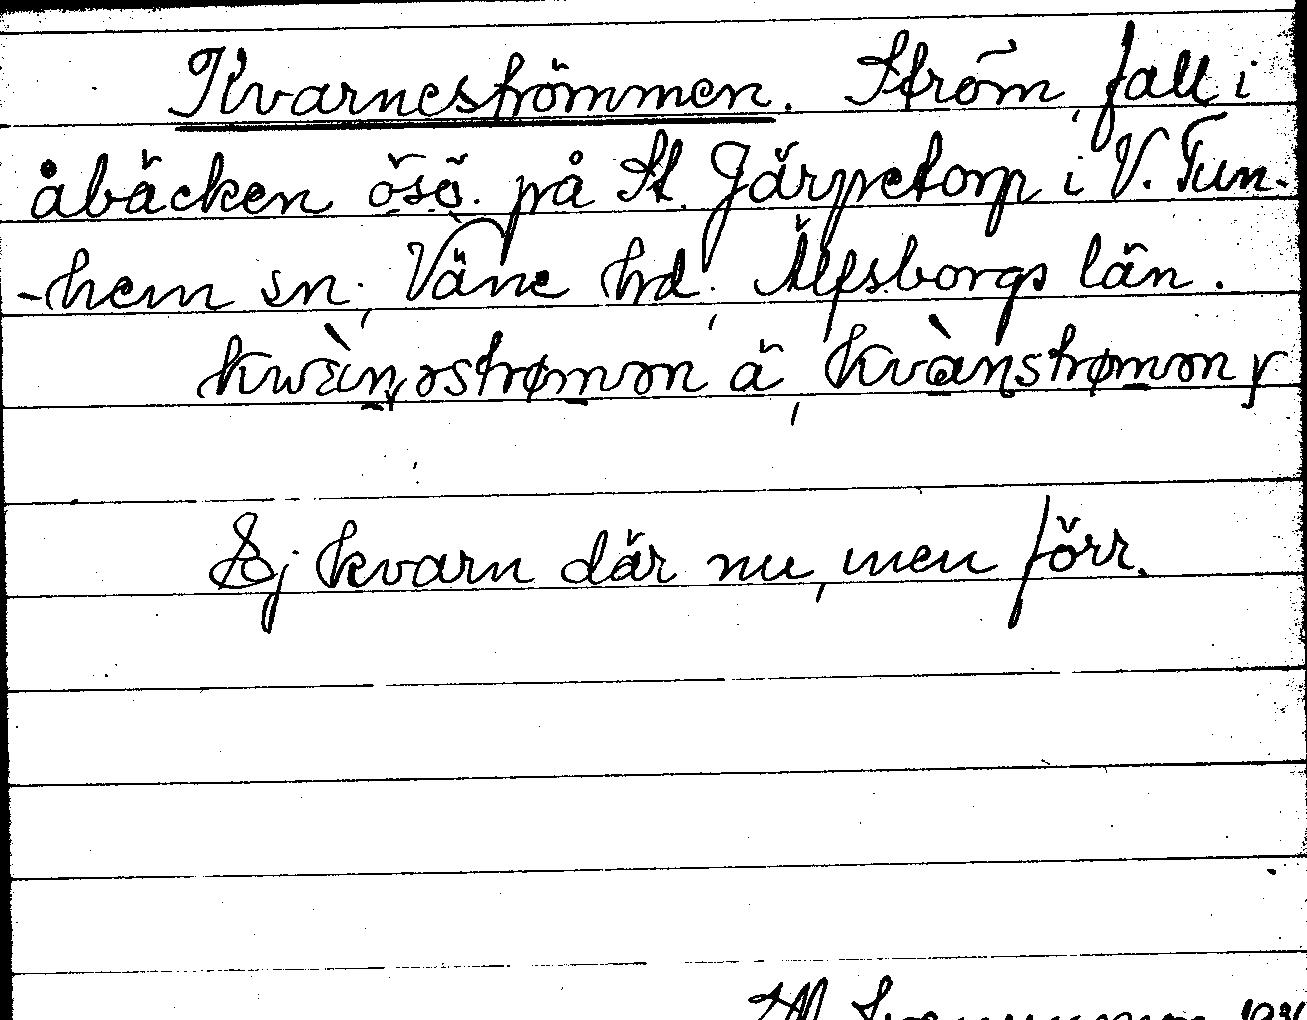 Kvarneströmmen. Ström, fall i
åbäcken ösö. på St. Järpetorp i V. Tun-
-hem sn, Väne hd, Älfsborgs län.
kwàṇəstrømən ä, kvànstrømən
Ej kvarn där nu, men förr.